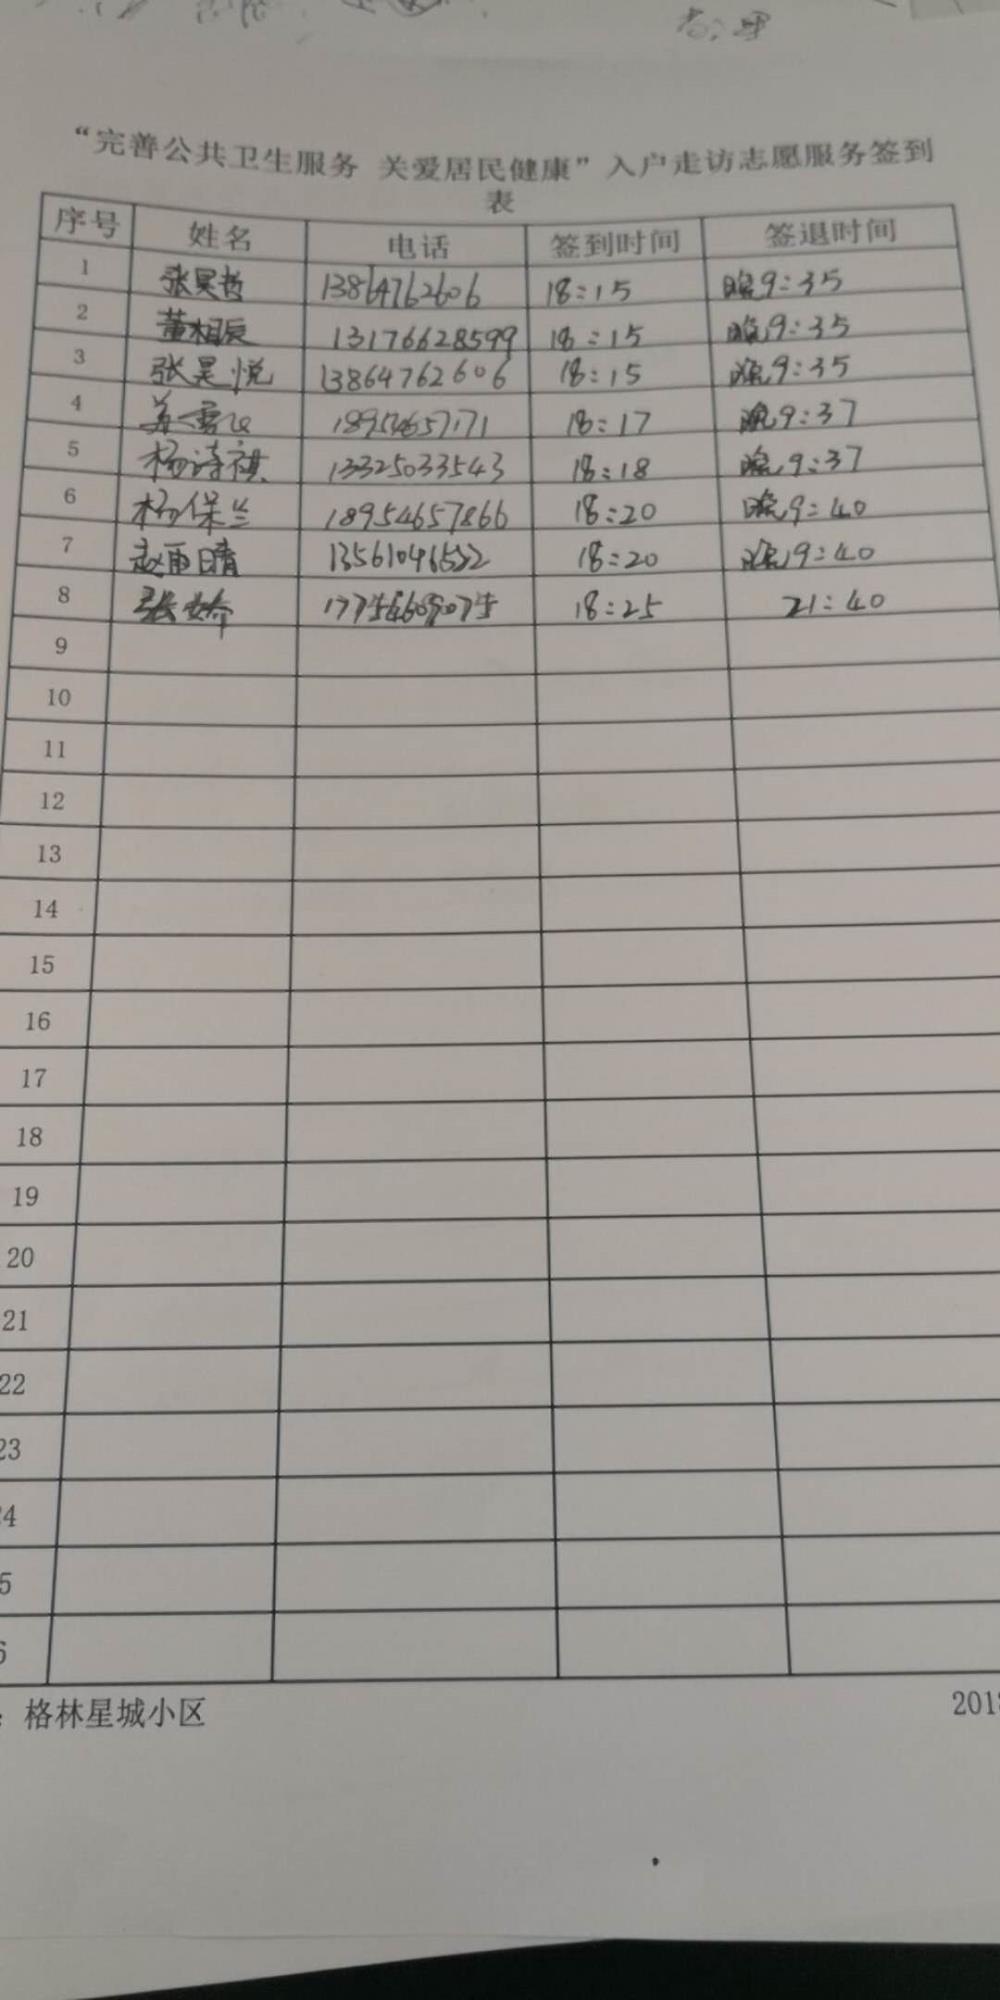 “完善公共卫生服务 关爱居民健康”入户走访志愿服务签到
表
序号 姓名 电话 签到时间 签退时间
1 张昊哲 13864762606 18:15 晚9:35
2 董相辰 13176628599 18:15 晚9:35
3 张昊悦 13864762606 18:15 晚9:35
4 18954657171 18:17 晚9:37
5 杨诗祺 13325033543 18:18 晚9:37
6 杨保兰 18954657866 18:20 晚9:40
7 赵雨晴 18:20 晚9:40
8 张娇 18:25 21:40
9
10
11
12
13
14
15
16
17
18
19
20
21
22
23
4
5
6
: 格林星城小区 201